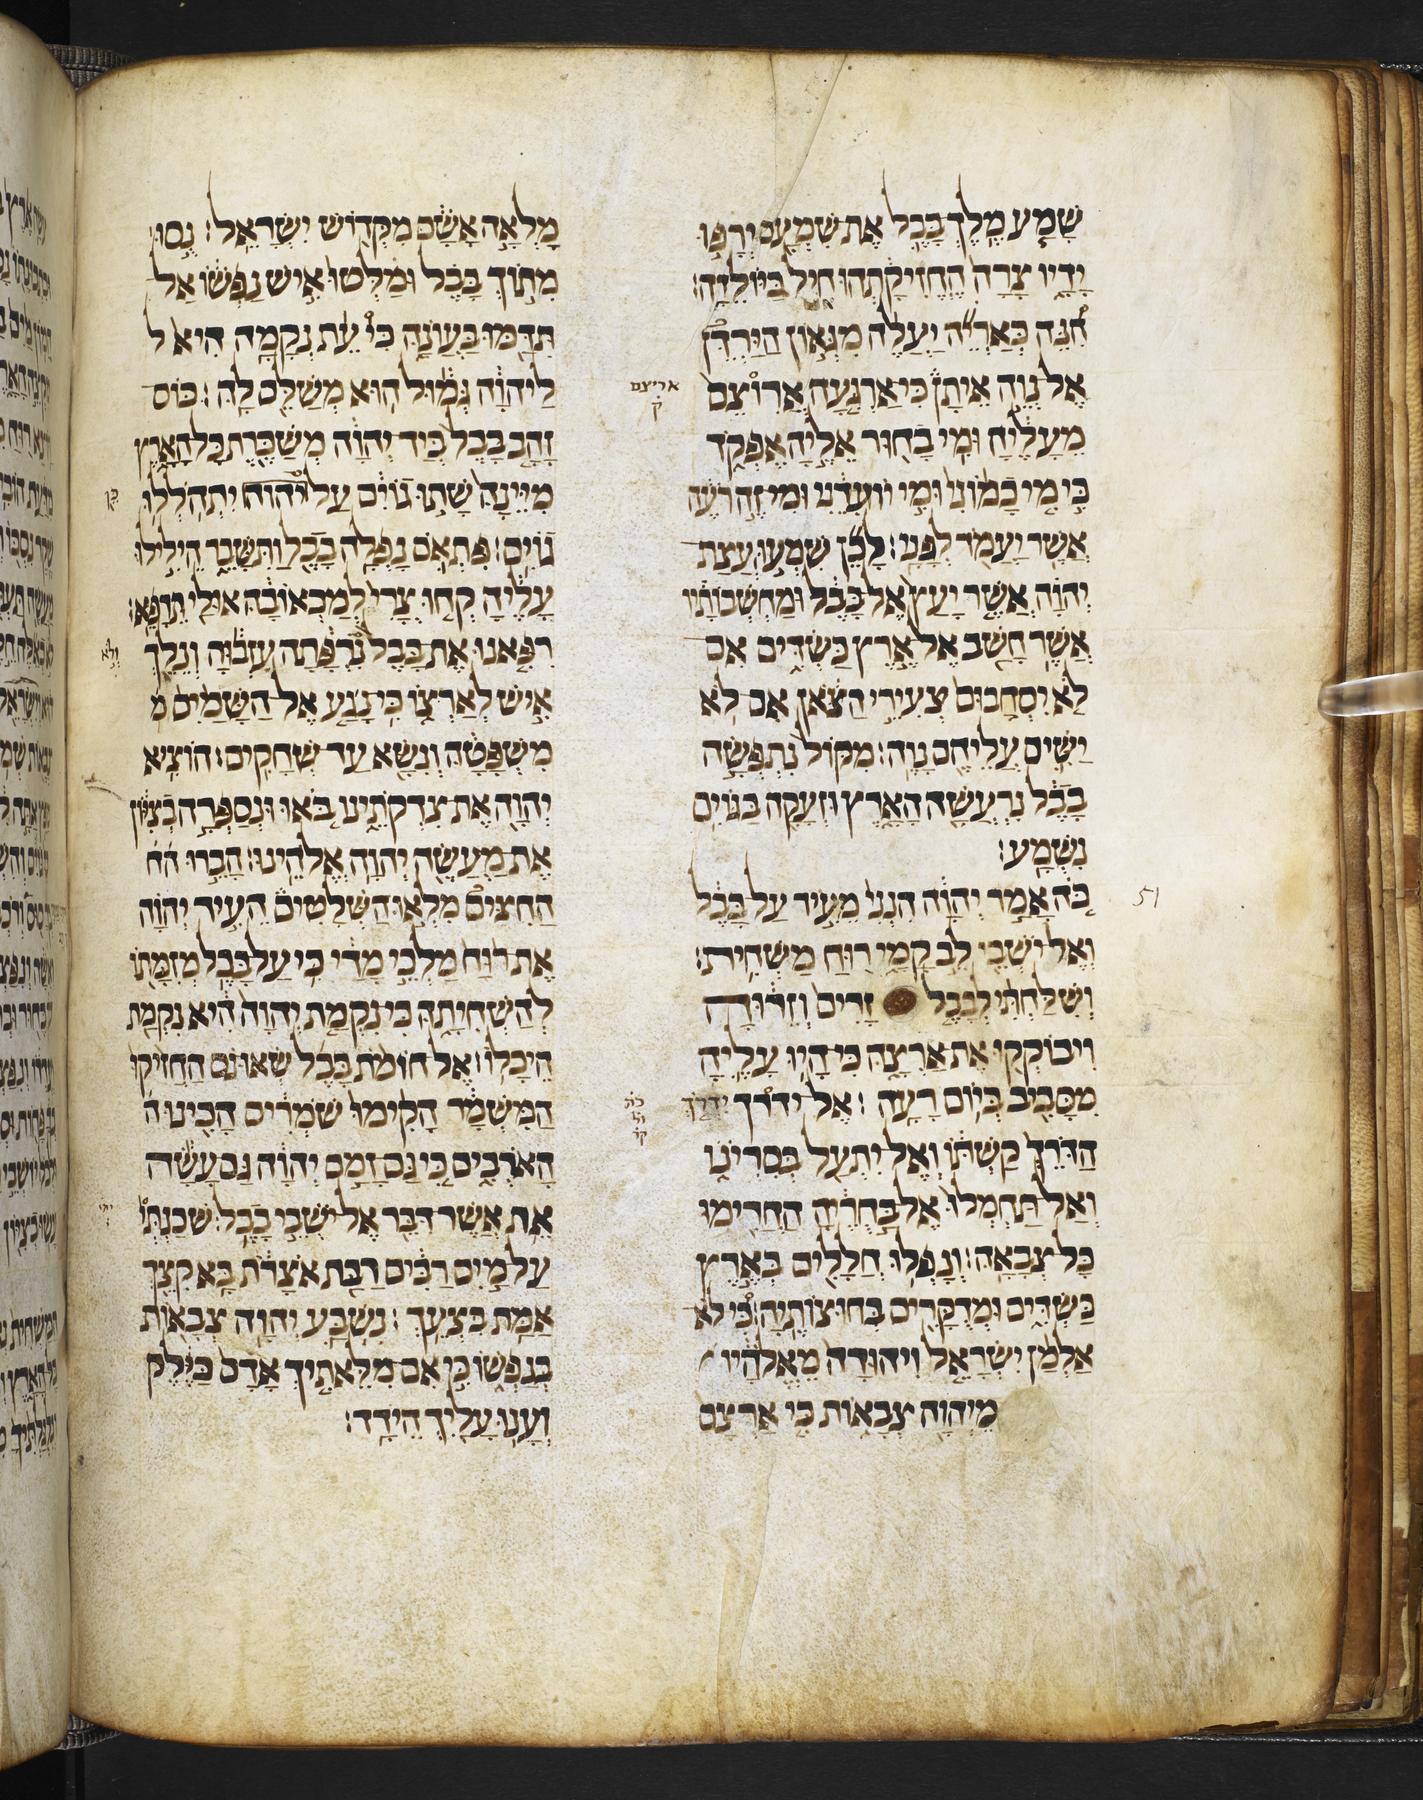 שָׁמַע מֶלֶךְ בָּבֶל אֶת שִׁמְעָם וְרָפוּ
יָדָיו צָרָה הֶחֱזִיקַתְהוּ חִיל כַּיּוֹלֵדָה׃
הִנֵּה כְּאַרְיֵה יַעֲלֶה מִגְּאוֹן הַיַּרְדֵּן
אֶל נְוֵה אֵיתָן כִּי אַרְגִּעָה אֲרוֹצֵם
אריצם
ק
מֵעָלֶיהָ וּמִי בָחוּר אֵלֶיהָ אֶפְקֹד
כִּי מִי כָמוֹנִי וּמִי יוֹעִדֶנִּי וּמִי זֶה רֹעֶה
אֲשֶׁר יַעֲמֹד לְפָנָי׃ לָכֵן שִׁמְעוּ עֲצַת
יְהוָה אֲשֶׁר יָעַץ אֶל בָּבֶל וּמַחְשְׁבוֹתָיו
אֲשֶׁר חָשַׁב אֶל אֶרֶץ כַּשְׂדִּים אִם
לֹא יִסְחָבוּם צְעִירֵי הַצֹּאן אִם לֹא
יַשִּׁים עֲלֵיהֶם נָוֶה׃ מִקּוֹל נִתְפְּשָׂה
בָבֶל נִרְעֲשָׁה הָאָרֶץ וּזְעָקָה בַּגּוֹיִם
נִשְׁמָע׃
כֹּה אָמַר יְהוָה הִנְנִי מֵעִיר עַל בָּבֶל
51
וְאֶל יֹשְׁבֵי לֵב קָמָי רוּחַ מַשְׁחִית׃
וְשִׁלַּחְתִּי לְבָבֶל זָרִים וְזֵרוּהָ
וִיבוֹקְקוּ אֶת אַרְצָהּ כִּי הָיוּ עָלֶיהָ
מִסָּבִיב בְּיוֹם רָעָה׃ אֶל יִדְרֹךְ יִדְרֹךְ
הַדֹּרֵךְ קַשְׁתּוֹ וְאֶל יִתְעַל בְּסִרְיֹנוֹ
וְאַל תַּחְמְלוּ אֶל בַּחֻרֶיהָ הַחֲרִימוּ
כָּל צְבָאָהּ׃ וְנָפְלוּ חֲלָלִים בְּאֶרֶץ
כַּשְׂדִּים וּמְדֻקָּרִים בְּחוּצוֹתֶיהָ׃ כִּי לֹא
אַלְמָן יִשְׂרָאֵל וִיהוּדָה מֵאֱלֹהָיו
מֵיְהוָה צְבָאוֹת כִּי אַרְצָם
מָלְאָה אָשָׁם מִקְּדוֹשׁ יִשְׂרָאֵל׃ נֻסוּ
מִתּוֹךְ בָּבֶל וּמַלְּטוּ אִישׁ נַפְשׁוֹ אַל
תִּדַּמּוּ בַּעֲוֹנָהּ כִּי עֵת נְקָמָה הִיא ל
לַיהוָה גְּמוּל הוּא מְשַׁלֵּם לָהּ׃ כּוֹס
זָהָב בָּבֶל בְּיַד יְהוָה מְשַׁכֶּרֶת כָּל הָאָרֶץ
מִיֵּינָהּ שָׁתוּ גוֹיִם עַל יהוה יִתְהֹלְלוּ
כן
גוֹיִם׃ פִּתְאֹם נָפְלָה בָבֶל וַתִּשָּׁבֵר הֵילִילוּ
עָלֶיהָ קְחוּ צֳרִי לְמַכְאוֹבָהּ אוּלַי תֵּרָפֵא׃
רִפִּאנוּ אֶת בָּבֶל נִרְפָּתָה עִזְבוּהָ וְנֵלֵךְ
ולא
אִישׁ לְאַרְצוֹ כִּי נָגַע אֶל הַשָּׁמַיִם מ
מִשְׁפָּטָהּ וְנִשָּׂא עַד שְׁחָקִים׃ הוֹצִיא
יְהוָה אֶת צִדְקֹתֵינוּ בֹּאוּ וּנְסַפְּרָה בְצִיּוֹן
אֶת מַעֲשֵׂה יְהוָה אֱלֹהֵינוּ׃ הָבֵרוּ הח
הַחִצִּים מִלְאוּ הַשְּׁלָטִים הֵעִיר יְהוָה
אֶת רוּחַ מַלְכֵי מָדַי כִּי עַל בָּבֶל מְזִמָּתוֹ
לְהַשְׁחִיתָהּ כִּי נִקְמַת יְהוָה הִיא נִקְמַת
הֵיכָלוֹ׃ אֶל חוֹמֹת בָּבֶל שְׂאוּ נֵס הַחֲזִיקוּ
הַמִּשְׁמָר הָקִימוּ שֹׁמְרִים הָכִינוּ ה
הָאֹרְבִים כִּי גַּם זָמַם יְהוָה גַּם עָשָׂה
אֵת אֲשֶׁר דִּבֶּר אֶל יֹשְׁבֵי בָבֶל׃ שֹׁכַנְתְּי
עַל מַיִם רַבִּים רַבַּת אֹצָרֹת בָּא קִצֵּךְ
אַמַּת בִּצְעֵךְ׃ נִשְׁבַּע יְהוָה צְבָאוֹת
בְּנַפְשׁוֹ כִּי אִם מִלֵּאתִיךְ אָדָם כַּיֶּלֶק
וְעָנוּ עָלַיִךְ הֵידָד׃